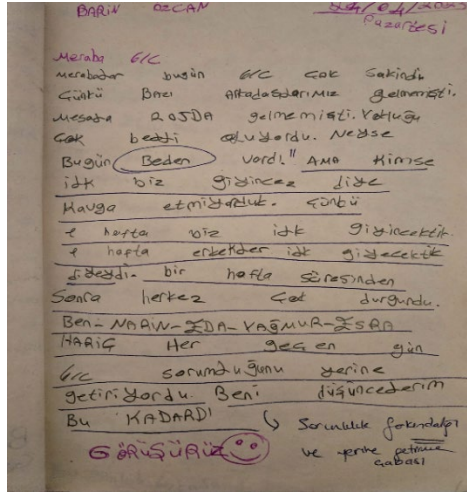 BARIN OZCAN 24/04/2023
Pazartesi
Meraba 6/C
merabadar bugün 6/C Çok Sakindi
Çünkü Bazı Arkadaşlarımız gelmemişti.
Mesela gelmemişti. Yokluğu
Çok beddi oluyordu. Neyse
Bugün Beden vardı." AMA Kimse
idk biz giyincez diye
Kavga etmiyorduk. Çünkü
1 hafta biz idk giyincektik.
1 hafta erkekder idk giyecektik
diyeydi. bir hafta süresinden
Sonra herkez Çok durgundu.
Ben - NARİN - EDA - YAĞMUR - ESRA
HARİÇ Her geçen gün
6/C sorumduğunu yerine
getiriyordu. Beni düşüncederim
Bu KADARDI
Sorumluluk farkındalığı
ve yerine getirme
çabası
GÖRÜŞÜRÜZ